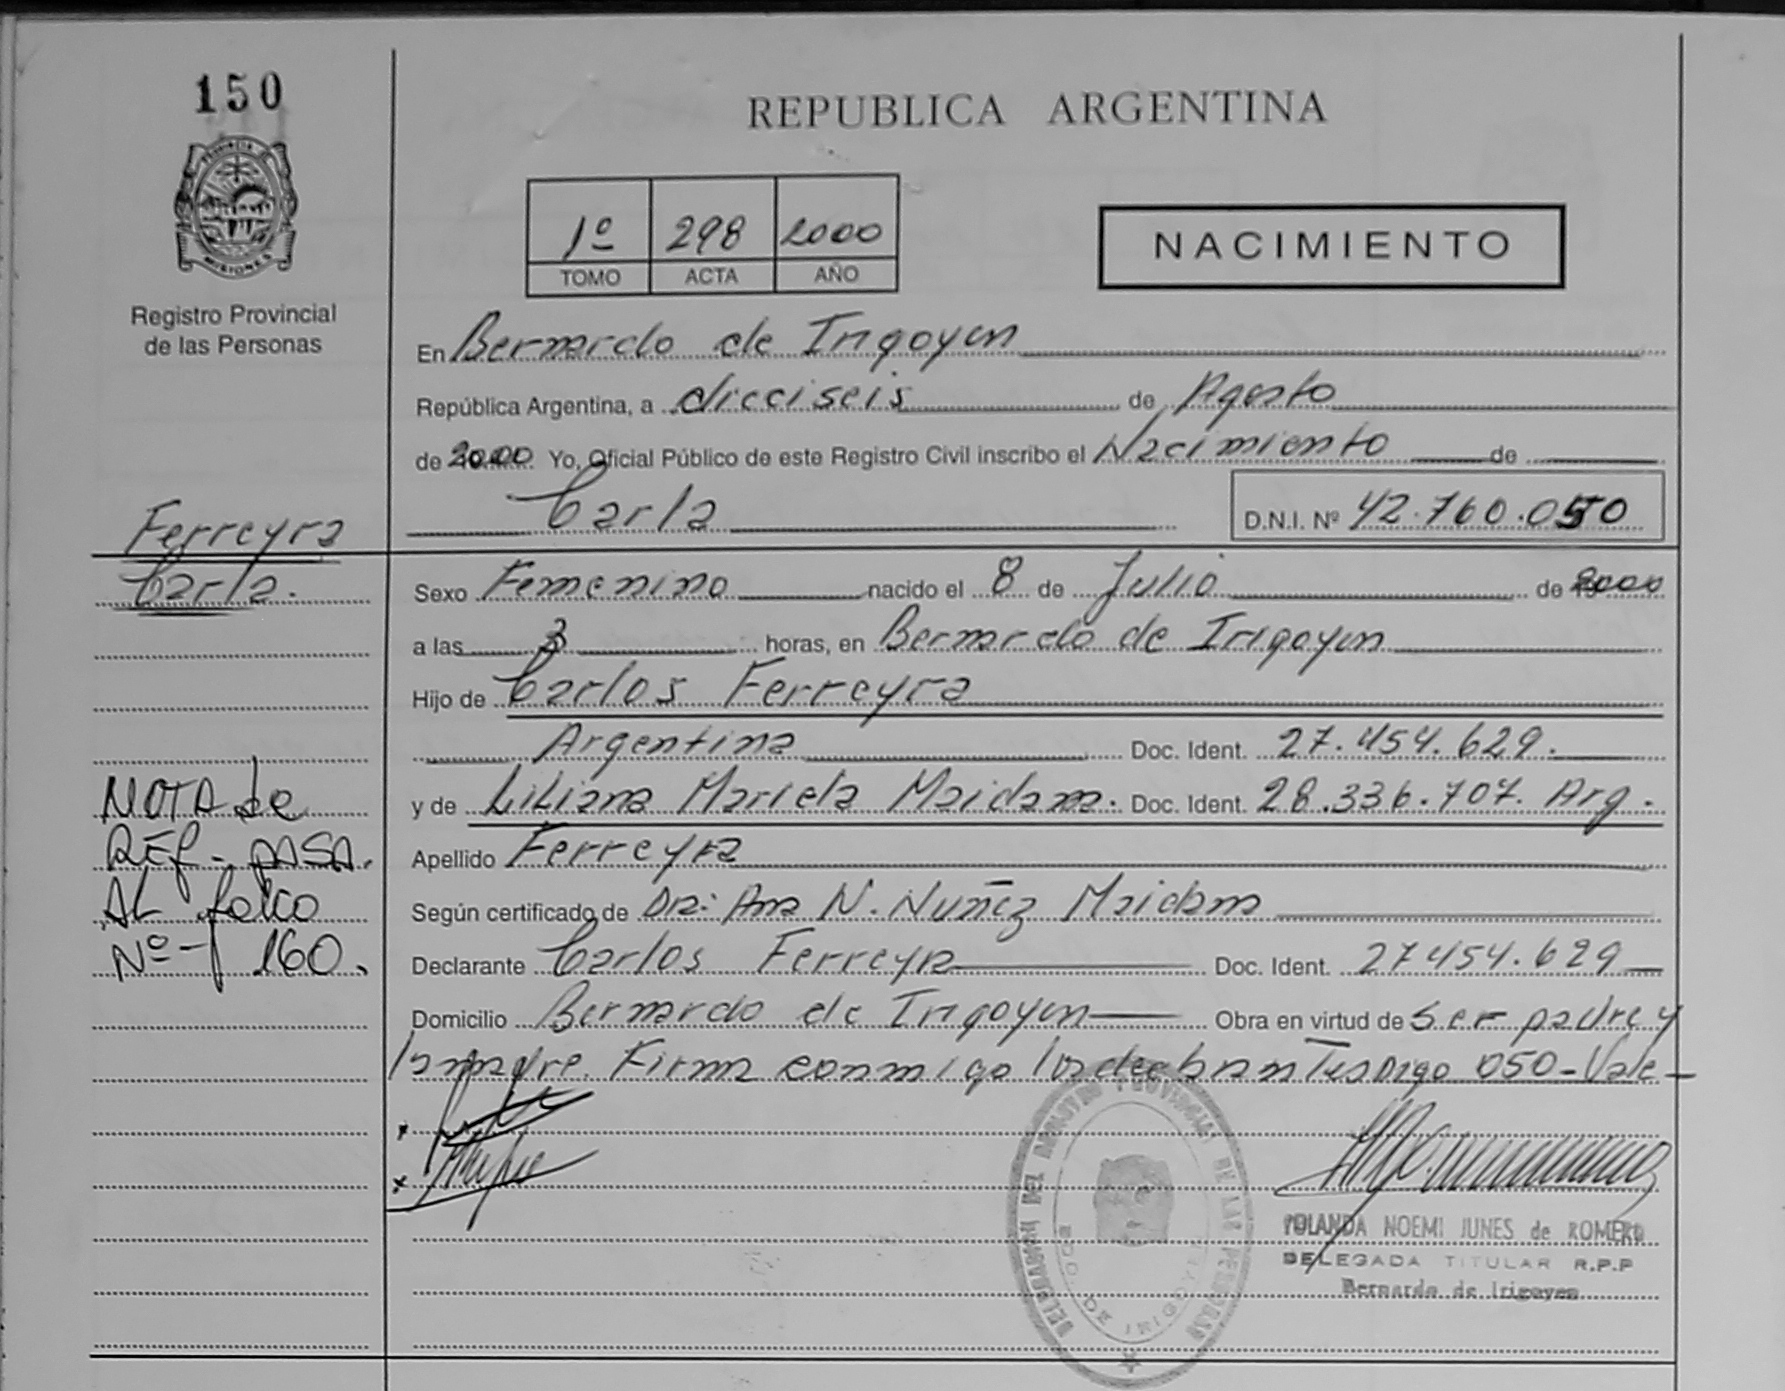 150
REPUBLICA ARGENTINA
PROVINCIA DE
MISIONES
1º 298 2000
TOMO ACTA AÑO
NACIMIENTO
Registro Provincial
de las Personas
En Bernardo de Irigoyen
República Argentina, a dieciseis de Agosto
de 2000 Yo, Oficial Público de este Registro Civil inscribo el Nacimiento de
Carla D.N.I. Nº 42.760.050
Ferreyra
Carla.
Sexo Femenino nacido el 8 de Julio de 2000
a las 3 horas, en Bernardo de Irigoyen
Hijo de Carlos Ferreyra
Argentina Doc. Ident. 27.454.629.
y de Liliana Mariela Maidana. Doc. Ident. 28.336.707. Arg.
Apellido Ferreyra
Según certificado de Dra: Ana N. Nuñez Maidana
Declarante Carlos Ferreyra Doc. Ident. 27454.629
Domicilio Bernardo de Irigoyen Obra en virtud de ser padre y
la madre. Firma conmigo los declarantes Digo 050-Vale-
NOTA de
REF- PASA.
AL folio
Nº- 160.
YOLANDA NOEMI JUNES de ROMERO
DELEGADA TITULAR R.P.P
Bernardo de Irigoyen